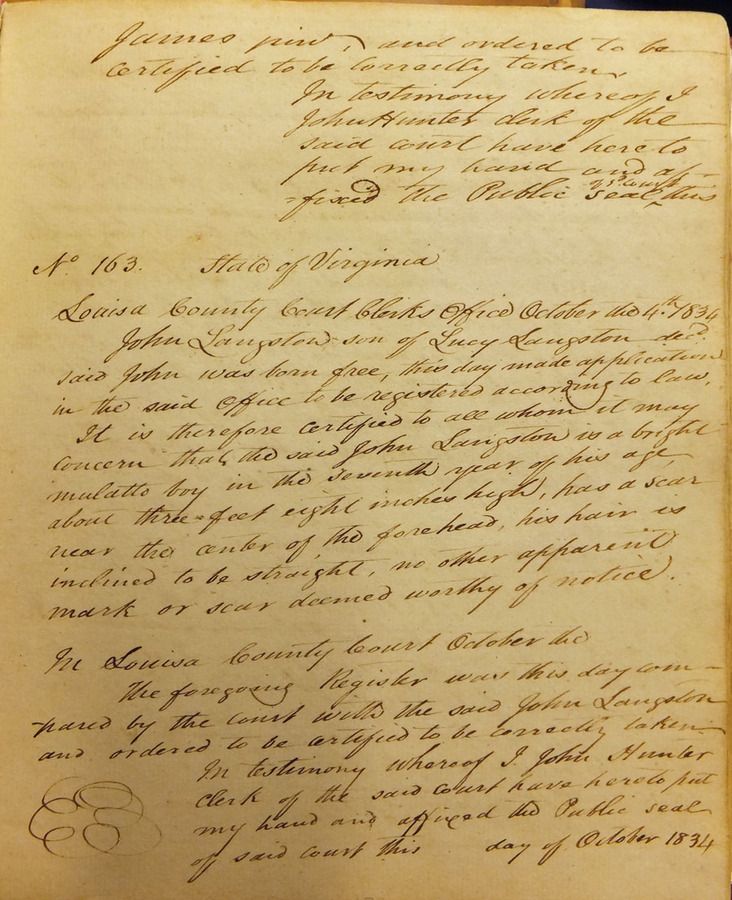 James         , and ordered to be
certified to be correctly taken,
In testimony whereof I
John Hunter clerk of the
said court have here to
put my hand and af-
-fixed the Public seal ^ of sd. court this
No. 163. State of Virginia
Louisa County Court Clerks Office October the 4th. 1834
John Langston son of Lucy Langston decd.
said John was born free, this day made application
in the said office to be registered according to law,
It is therefore certified to all whom it may
concern that, the said John Langston is a bright
mulatto boy in the seventh year of his age,
about three-feet eight inches high, has a scar
near the center of the forehead, his hair is
inclined to be straight, no other apparent
mark or scar deemed worthy of notice.
In Louisa County Court October the
The foregoing Register was this day com-
-pared by the court with the said John Langston
and ordered to be certified to be correctly taken
In testimony whereof I. John Hunter
clerk of the said court have hereto put
my hand and affixed the Public seal
of said court this day of October 1834